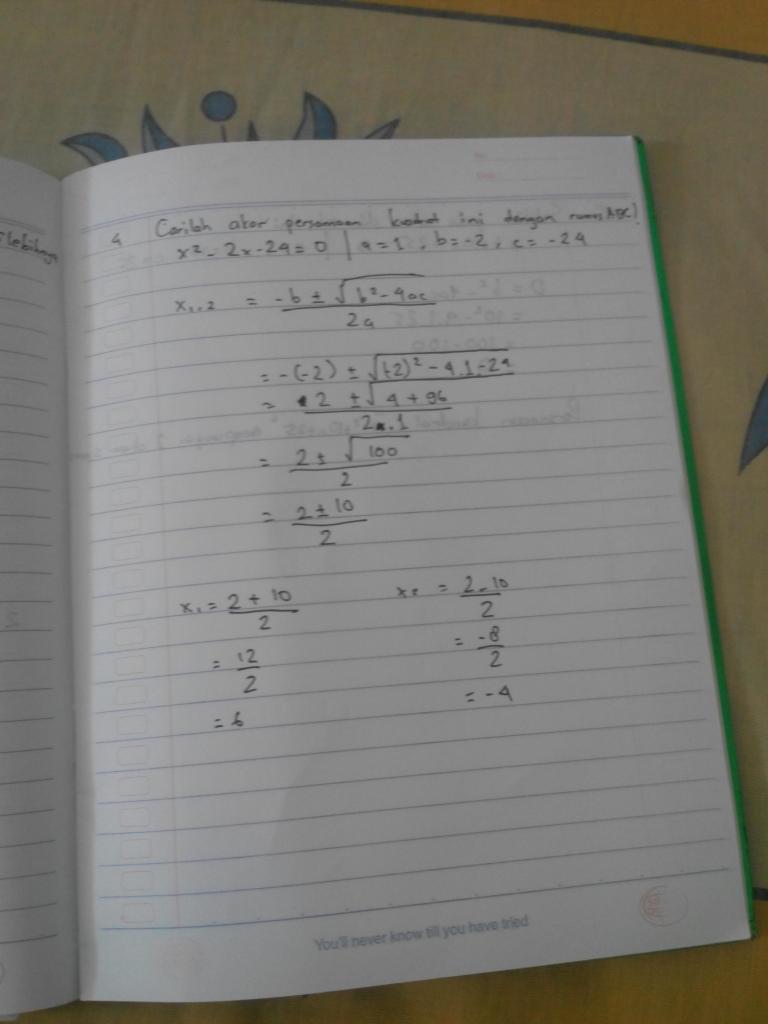 4 Carilah akar persamaan kuadrat ini dengan rumus ABC!
x² - 2x - 24 = 0 | a = 1 ; b = -2 ; c = -24
x₁,₂ = -b ± √b² - 4ac / 2a
= -(-2) ± √(-2)² - 4.1.-24
= 2 ± √4 + 96 / 2.1
= 2 ± √100 / 2
= 2 ± 10 / 2
x₁ = 2 + 10 / 2
= 12 / 2
= 6
x₂ = 2 - 10 / 2
= -8 / 2
= -4
You'll never know till you have tried